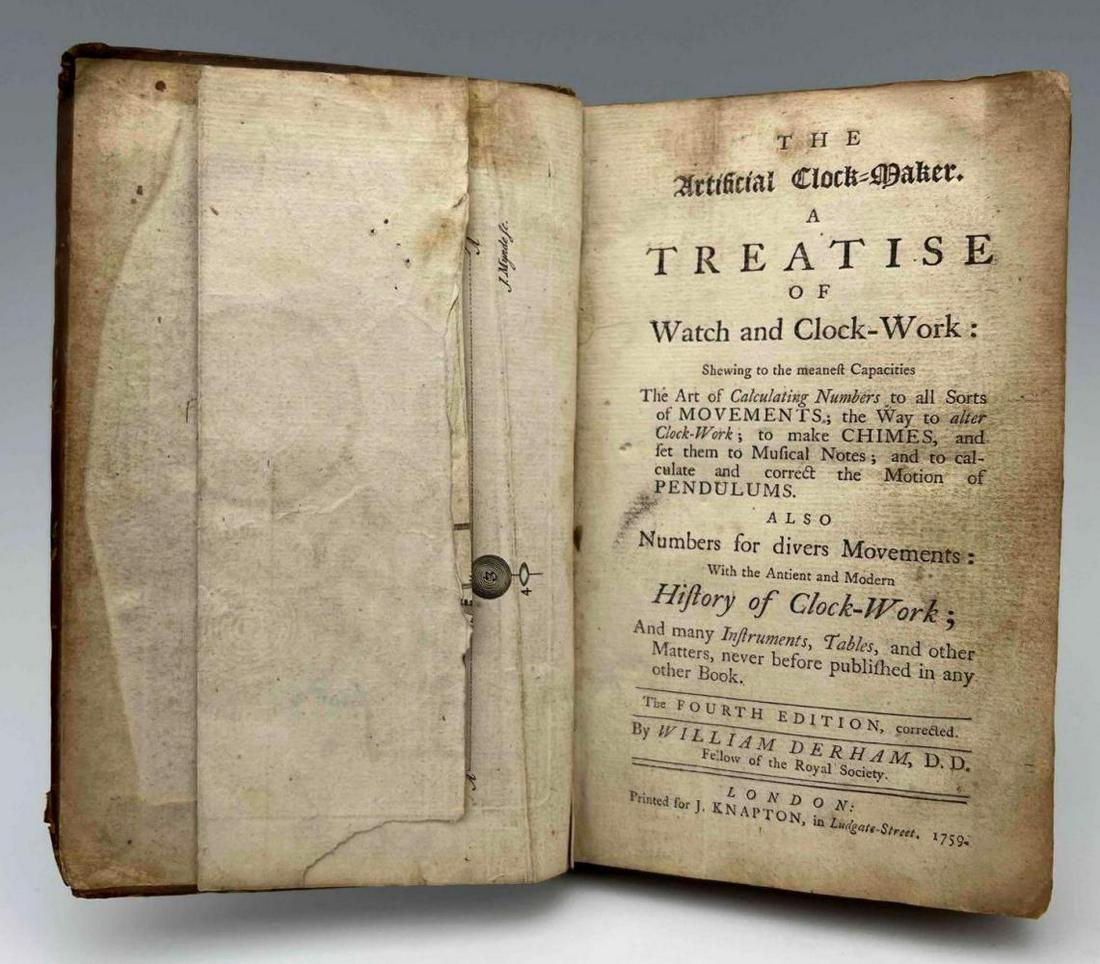 J. Mynde sc.
A
3
4
A
THE
Artificial Clock=Maker.
A
TREATISE
OF
Watch and Clock-Work:
Shewing to the meaneſt Capacities
The Art of Calculating Numbers to all Sorts
of MOVEMENTS; the Way to alter
Clock-Work; to make CHIMES, and
ſet them to Muſical Notes; and to cal-
culate and correct the Motion of
PENDULUMS.
ALSO
Numbers for divers Movements:
With the Antient and Modern
Hiſtory of Clock-Work;
And many Inſtruments, Tables, and other
Matters, never before publiſhed in any
other Book.
The FOURTH EDITION, corrected.
By WILLIAM DERHAM, D. D.
Fellow of the Royal Society.
LONDON:
Printed for J. KNAPTON, in Ludgate-Street. 1759.